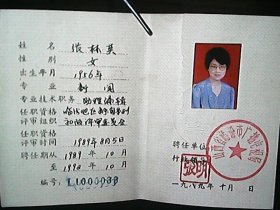 姓名 张林英
性别 女
出生年月 1956年
专业 新闻
专业技术职务 助理编辑
任职资格 临汾地区新闻系列
评审组织 初级评审委员会
任职时间 1989年8月5日
聘任期从 1989年10月
至 1990年10月
编号: L1000038
聘任单位
行政领导
一九八九年十月 日